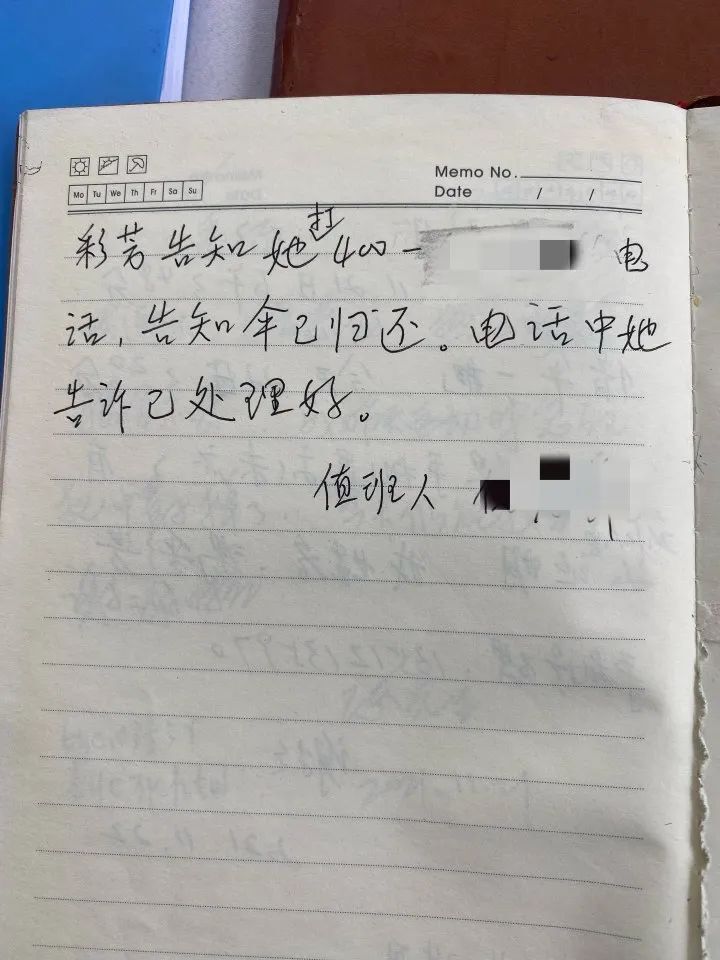 Memo No.
Mo Tu We Th Fr Sa Su
Date / /
打
彩芳告知她400-
电
话，告知伞已归还。电话中她
告诉已处理好。
值班人